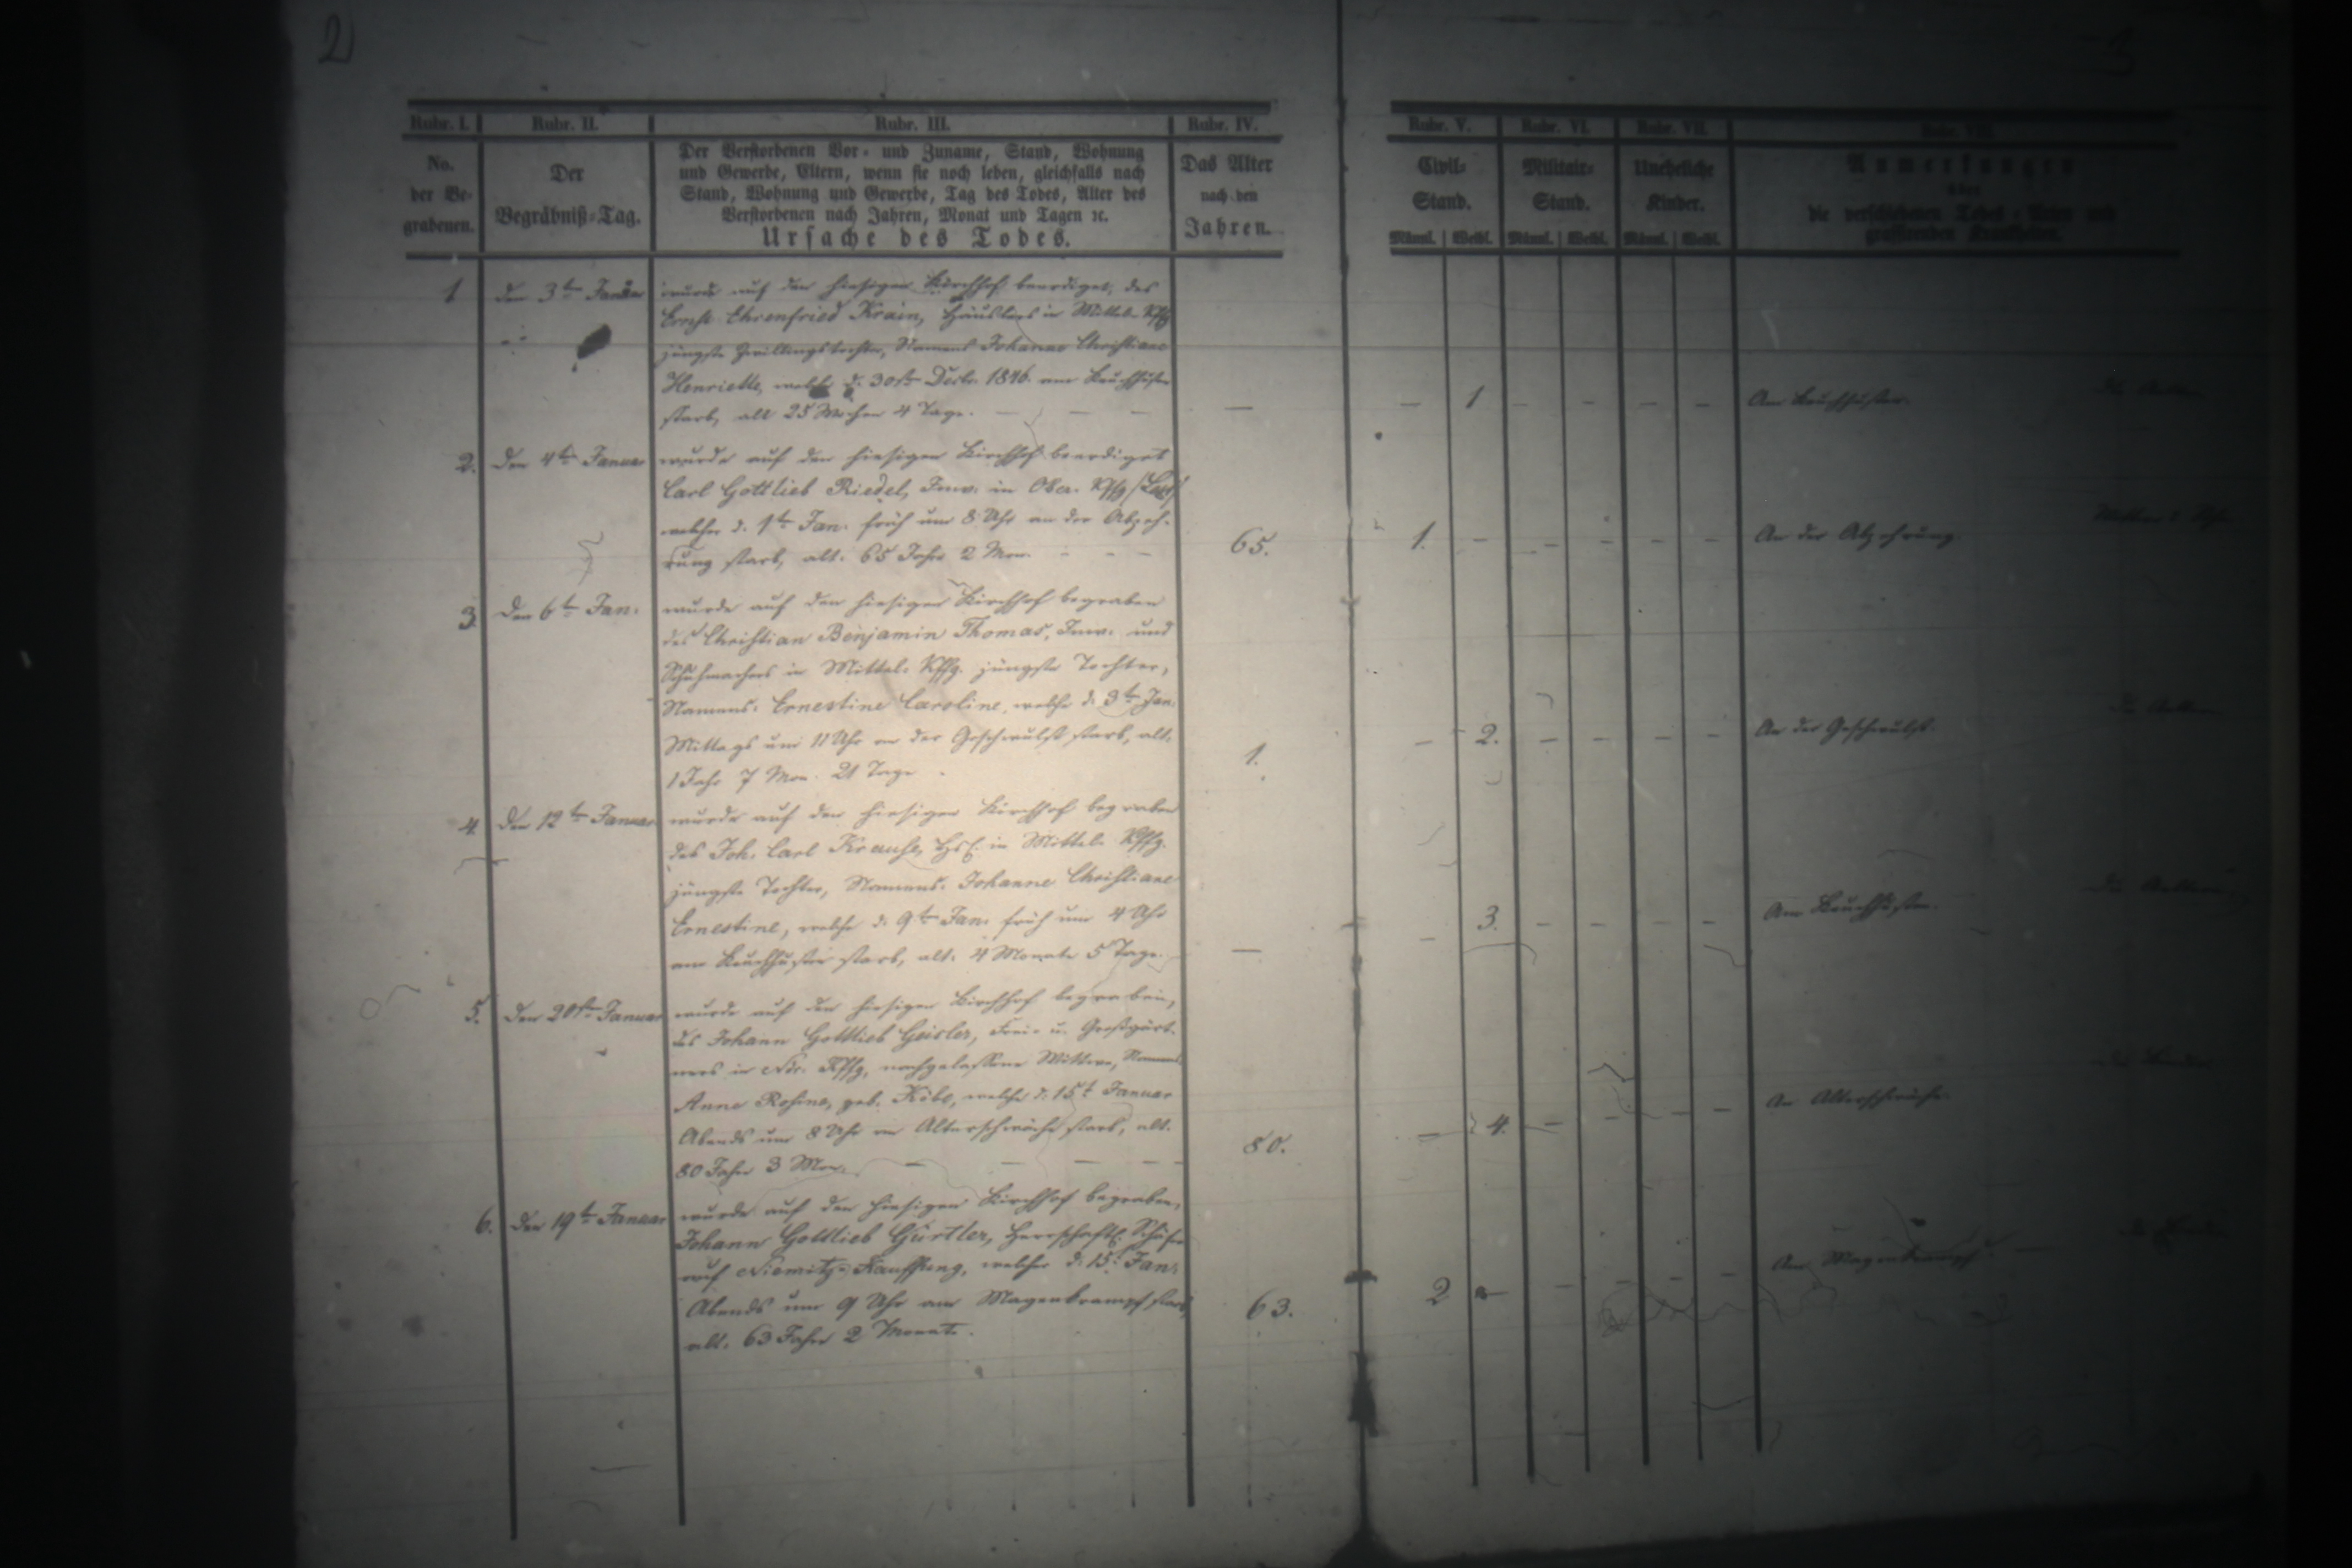 2
3
Rubr. I.
Rubr. II.
Rubr. III.
Rubr. IV.
Rubr. V.
Rubr. VI.
Rubr. VII.
Rubr. VIII.
No.
der Be-
grabenen.
Der
Begräbniß-Tag.
Der Verstorbenen Vor- und Zuname, Stand, Wohnung
und Gewerbe, Eltern, wenn sie noch leben, gleichfalls nach
Stand, Wohnung und Gewerbe, Tag des Todes, Alter des
Verstorbenen nach Jahren, Monat und Tagen ꝛc.
Ursache des Todes.
Das Alter
nach den
Jahren.
Civil-
Stand.
Männl. Weibl.
Militair-
Stand.
Männl. Weibl.
Uneheliche
Kinder.
Männl. Weibl.
Anmerkungen
über
die verschiedenen Todes-Arten und
grassirenden Krankheiten.
1
den 3ten Januar
wurde auf den hiesigen Kirchhof beerdiget, des
Ernst Ehrenfried Krain, Häuslers in Mittel-Kffg
jüngste Zwillingstochter, Namens Johanne Christiane
Henriette, welche d. 30sten Decbr. 1846. am Keuchhusten
starb, alt 25 Wochen 4 Tage. — — —
—
— 1 — — — —
Am Keuchhusten.
die Aeltern
2.
Den 4ten Januar
wurde auf den hiesigen Kirchhof beerdiget
Carl Gottlieb Riedel, Inw. in Ober-Kffg
welcher d. 1ten Jan. früh um 8 Uhr an der Abzeh-
rung starb, alt. 65 Jahr 2 Mon. - - -
65.
1. — — — — —
An der Abzehrung.
3.
Den 6ten Jan.
wurde auf den hiesigen Kirchhof begraben
des Christian Benjamin Thomas, Inw. und
Schuhmachers in Mittel-Kffg. jüngste Tochter,
Namens: Ernestine Caroline, welche d. 3ten Jan.
Mittags um 11 Uhr an der Geschwulst starb, alt.
1 Jahr 7 Mon. 21 Tage
1.
— 2. — — — —
An der Geschwulst.
die Aeltern
4.
Den 12ten Januar
wurde auf den hiesigen Kirchhof begraben
des Joh. Carl Krause, Hsl. in Mittel-Kffg.
jüngste Tochter, Namens: Johanne Christiane
Ernestine, welche d. 9ten Jan. früh um 4 Uhr
am Keuchhusten starb, alt. 4 Monate 5 Tage.
—
— 3. — — — —
Am Keuchhusten.
die Aeltern
5.
Den 20sten Januar
wurde auf den hiesigen Kirchhof begraben,
des Johann Gottlieb Geisler, Frei- u. Großgärt-
ners in Ndr. Kffg, nachgelassene Wittwe, Namens
Anne Rosine, geb. Köbe, welche d. 15t Januar
Abends um 8 Uhr an Altersschwäche starb, alt.
80 Jahr 3 Mon. — — — —
80.
— 4. — — — —
An Altersschwäche.
6.
Den 19ten Januar
wurde auf den hiesigen Kirchhof begraben,
Johann Gottlieb Gürtler, herrschaftl. Schäfer
auf Niemitz-Kauffung, welcher d. 15t Jan.
Abends um 9 Uhr am Magenkrampf starb,
alt. 63 Jahr 2 Monate.
63.
2 — — — — —
Am Magenkrampf